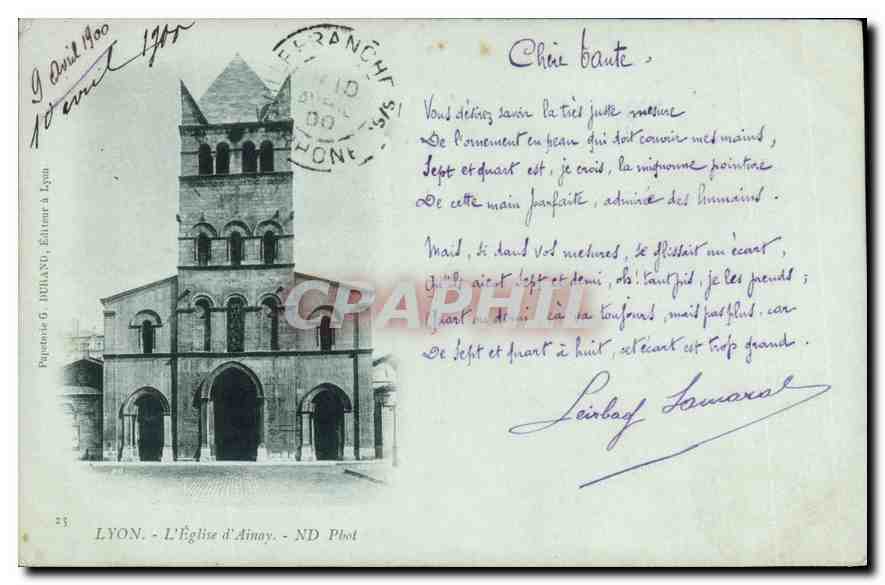 9 avril 1900
10 avril 1900
VILLEFRANCHE S/S
10
AVRIL
00
RHONE
Chère tante.
Vous désirez savoir la très juste mesure
De l'ornement en peau qui doit couvrir mes mains,
Sept et quart est, je crois, la mignonne pointure
De cette main parfaite, admirée des humains.
Mais, si dans vos mesures, se glissait un écart,
Qu'ils aient sept et demi, oh! tant pis, je les prends;
Quart ou demi ça va toujours, mais pas plus, car
De sept et quart à huit, cet écart est trop grand.
Papeterie G. DURAND, Éditeur à Lyon
CPAPHIL
25
LYON. - L'Église d'Ainay. - ND Phot